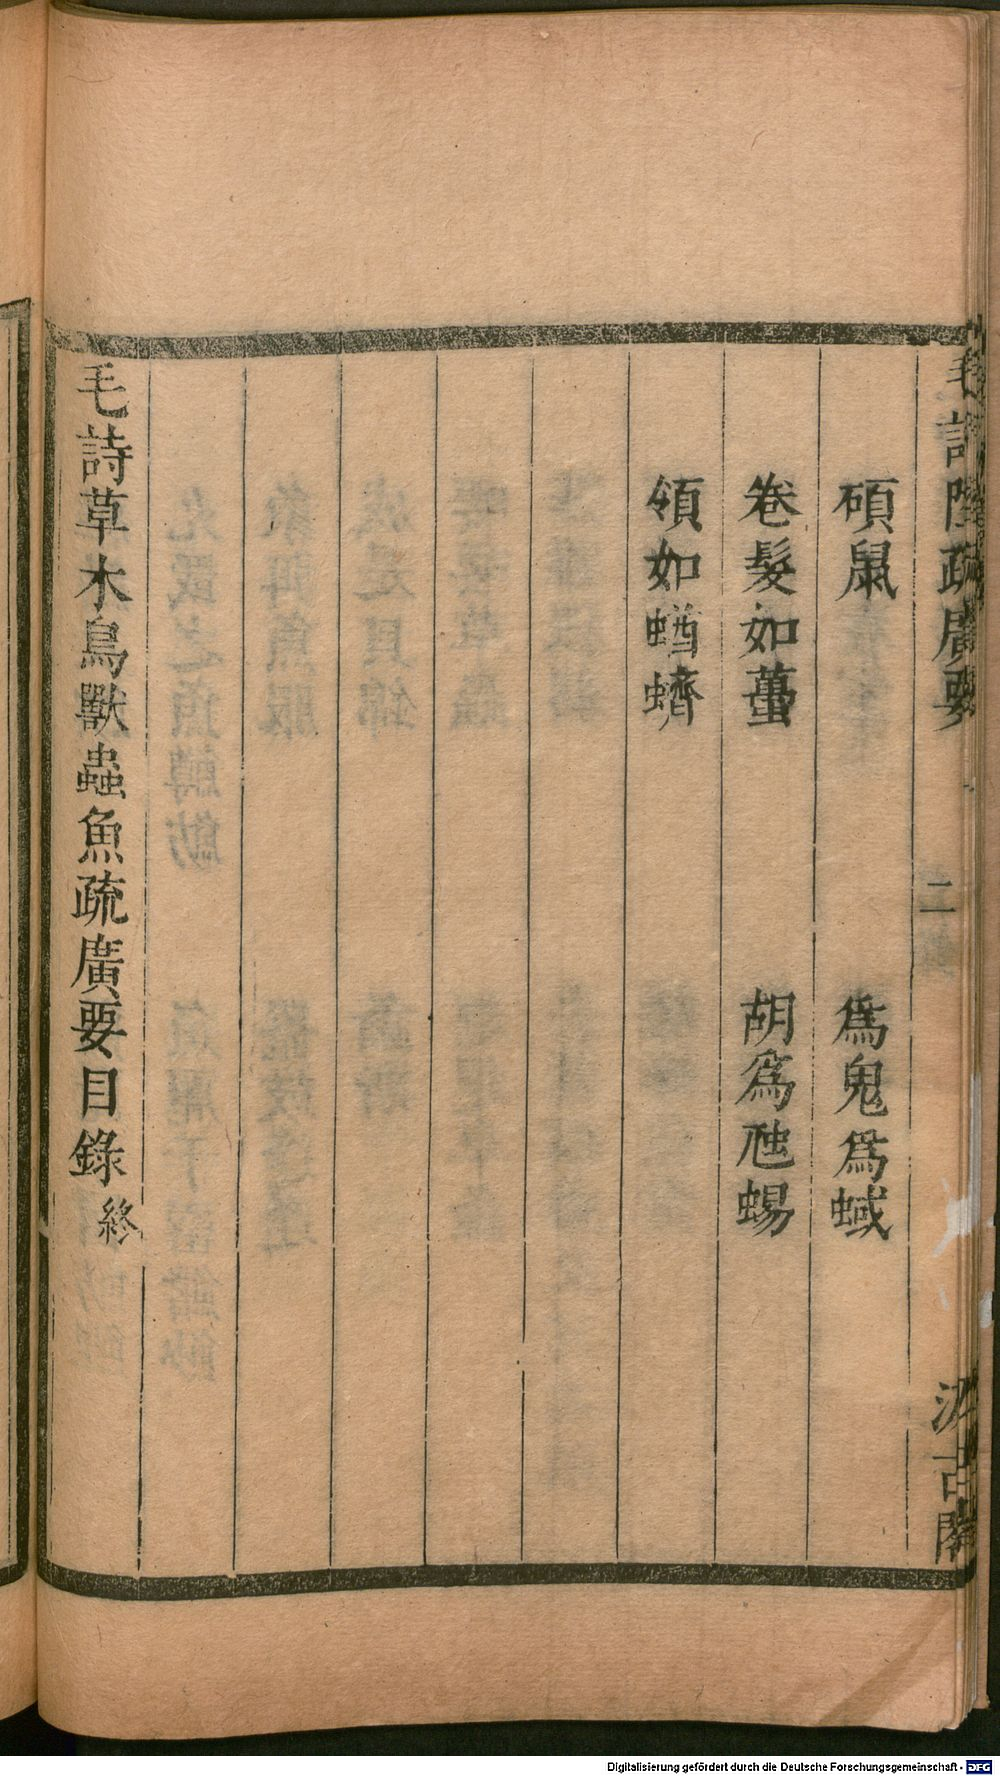 毛詩陸疏廣要
二
汲古閣
碩鼠
爲鬼爲蜮
卷髮如蠆
胡爲虺蜴
領如蝤蠐
毛詩草木鳥獸蟲魚疏廣要目錄 終
Digitalisierung gefördert durch die Deutsche Forschungsgemeinschaft - DFG